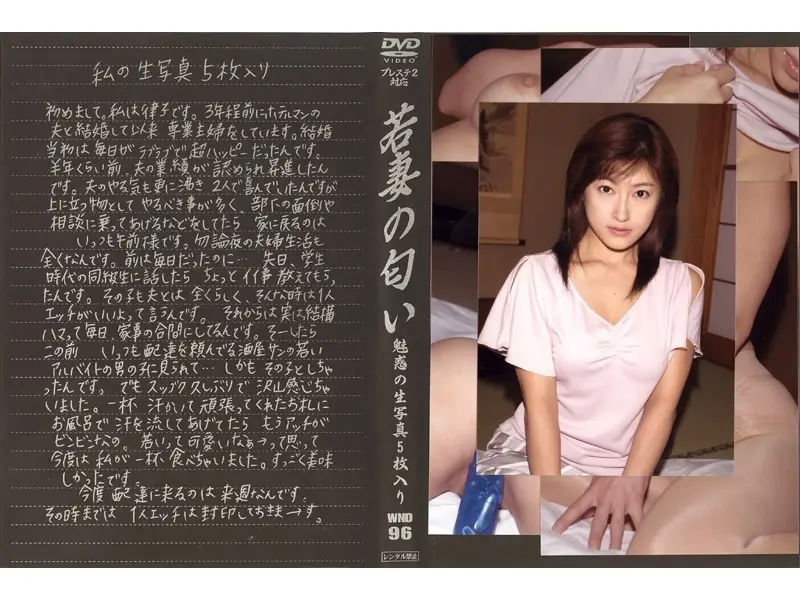 私の生写真5枚入り
初めまして。私は律子です。3年程前にホテルマンの
夫と結婚して以来専業主婦をしています。結婚
当初は毎日がラブラブで超ハッピーだったんです。
半年くらい前、夫の業績が認められ昇進したん
です。夫のやる気も更に湧き2人で喜んでいたんですが
上に立つ物としてやるべき事が多く、部下の面倒や
相談に乗ってあげるなどをしてたら家に戻るのは
いつも午前様です。勿論夜の夫婦生活も
全くなんです。前は毎日だったのに… 先日、学生
時代の同級生に話したらちょっとイイ事教えてもら
たんです。その子も夫とは全くらしく、そんな時は1人
エッチがいいよって言うんです。それからは実は結構
ハマって毎日、家事の合間にしてるんです。そーしたら
この前 いつも配達を頼んでる酒屋サンの若い
アルバイトの男の子に見られて… しかもその子としちゃ
ったんです。でもスッゴク久しぶりで沢山感じちゃ
いました。一杯汗かいて頑張ってくれたお礼に
お風呂で汗を流してあげてたらもうアッチが
ビンビンなの。若いって可愛いなぁーって思って
今度は私が一杯食べちゃいました。すっごく美味
しかったです。
今度配達に来るのは来週なんです。
その時までは1人エッチは封印しておきまーす。
DVD
VIDEO
プレステ2
対応
若妻の匂い
魅惑の生写真5枚入り
WND
96
レンタル禁止